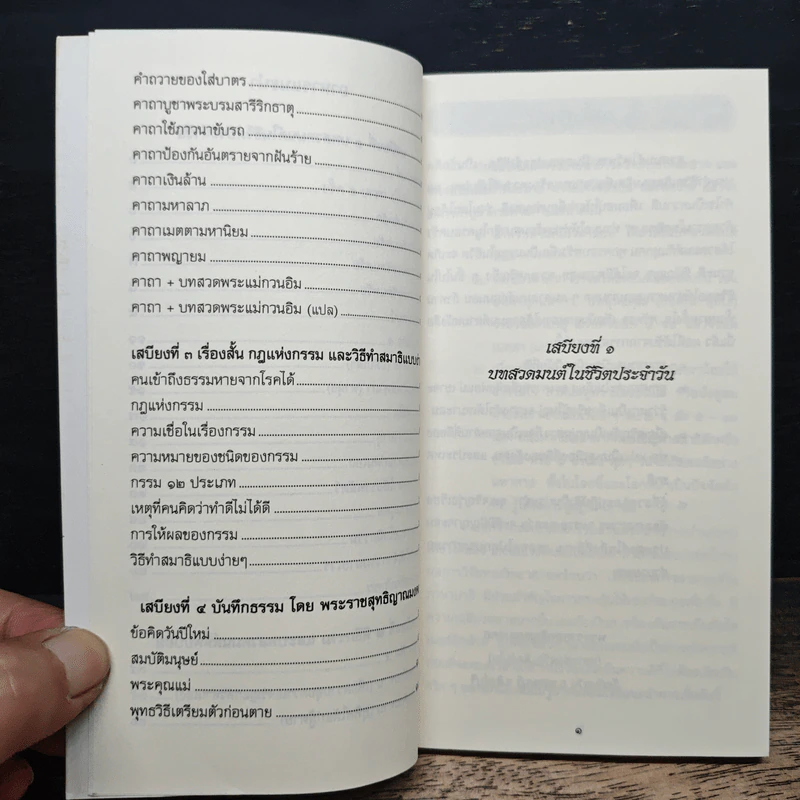 คำถวายของใส่บาตร
คาถาบูชาพระบรมสารีริกธาตุ
คาถาใช้ภาวนาขับรถ
คาถาป้องกันอันตรายจากฝันร้าย
คาถาเงินล้าน
คาถามหาลาภ
คาถาเมตตามหานิยม
คาถาพญายม
คาถา + บทสวดพระแม่กวนอิม
คาถา + บทสวดพระแม่กวนอิม (แปล)
เสบียงที่ ๓ เรื่องสั้น กฎแห่งกรรม และวิธีทำสมาธิแบบ
คนเข้าถึงธรรมหายจากโรคได้
กฎแห่งกรรม
ความเชื่อในเรื่องกรรม
ความหมายของชนิดของกรรม
กรรม ๑๒ ประเภท
เหตุที่คนคิดว่าทำดีไม่ได้ดี
การให้ผลของกรรม
วิธีทำสมาธิแบบง่ายๆ
เสบียงที่ ๔ บันทึกธรรม โดย พระราชสุทธิญาณ
ข้อคิดวันปีใหม่
สมบัติมนุษย์
พระคุณแม่
พุทธวิธีเตรียมตัวก่อนตาย
เสบียงที่ ๑
บทสวดมนต์ในชีวิตประจำวัน